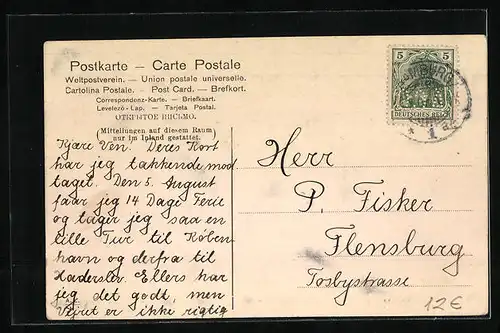 Postkarte – Carte Postale
Weltpostverein. – Union postale universelle.
Cartolina Postale. – Post Card. – Brefkort.
Correspondenz-Karte. – Briefkaart.
Levelező-Lap. – Tarjeta Postal.
ОТКРЫТОЕ ПИСЬМО.
(Mitteilungen auf diesem Raum
nur im Inland gestattet.)
Kjære Ven. Deres Kort
har jeg takkende mod
taget. Den 5. August
faar jeg 14 Dage Ferie
og tager jeg saa en
lille Tur til Köben
havn og derfra til
Haderslev. Ellers har
jeg det godt, men
Vejret er ikke rigtig
5 5
DEUTSCHES REICH
1
Herr
P. Fisker
Flensburg
Tosbystrasse
12€